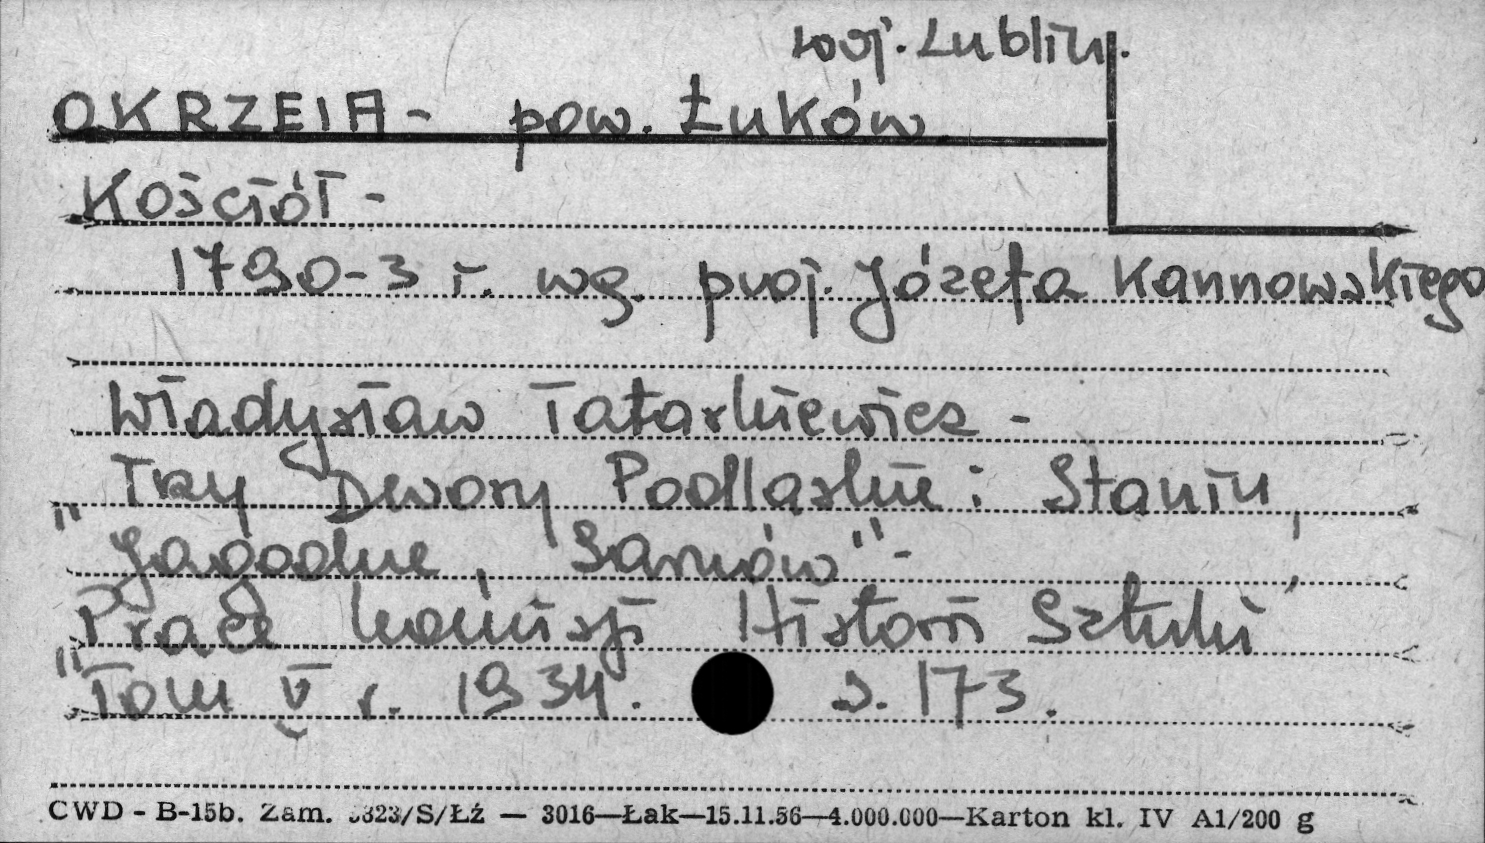 woj. Lublin.
OKRZEIA - pow. Łuków
Kościół -
1790-3 r. wg. proj. Józefa Kannowskiego
Władysław Tatarkiewicz -
"Trzy Dwory Podlaskie: Stanin,
Jagodne, Sarnów" -
"Prace Komisji Historii Sztuki"
Tom V r. 1934. s. 173.
CWD - B-15b. Zam. 3323/S/Łź — 3016—Łak—15.11.56—4.000.000—Karton kl. IV A1/200 g